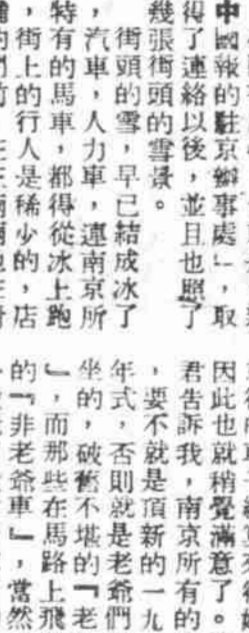 中國報的駐京辦事處」,取
得了連絡以後,並且也照了
幾張街頭的雪景。
街頭的雪,早已結成冰了
,汽車,人力車,連南京所
特有的馬車,都得從冰上跑
,街上的行人是稀少的,店
因此也就稍覺滿意了。
君告訴我,南京所有的
,要不就是頂新的一九
年式,否則就是老爺們
坐的,破舊不堪的『老
』,而那些在馬路上飛
的『非老爺車』,當然